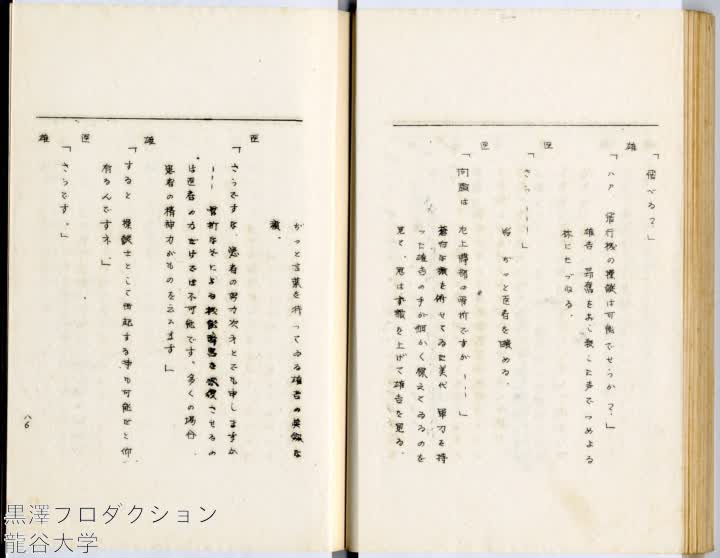 雄
「ハア 飛行機の操縦は可能でせうか？」
雄吉 昂奮をおし殺した声でつめよる
様にたづねる。
医
「さう……」
ぢっと医者を瞶める。
医
左上膊部の骨折ですが……」
蒼白な顔を俯せてゐた美代 軍刀を持
った雄吉の手が細かく震えてゐるのを
見て、思はず顔を上げて雄吉を見る。
ぢっと言葉を待ってゐる雄吉の真剣な
顔。
医
「さうですな、患者の努力次第とでも申しますか
…… 骨折などによる機能障害を恢復させるの
は医者の力だけでは不可能です。多くの場合
患者の精神力がものを云ひます」
雄
「すると 操縦士として再起する事も可能だと仰
有るんですネ。」
医
「さうです。」
雄
八6
黒澤プロダクション
龍谷大学